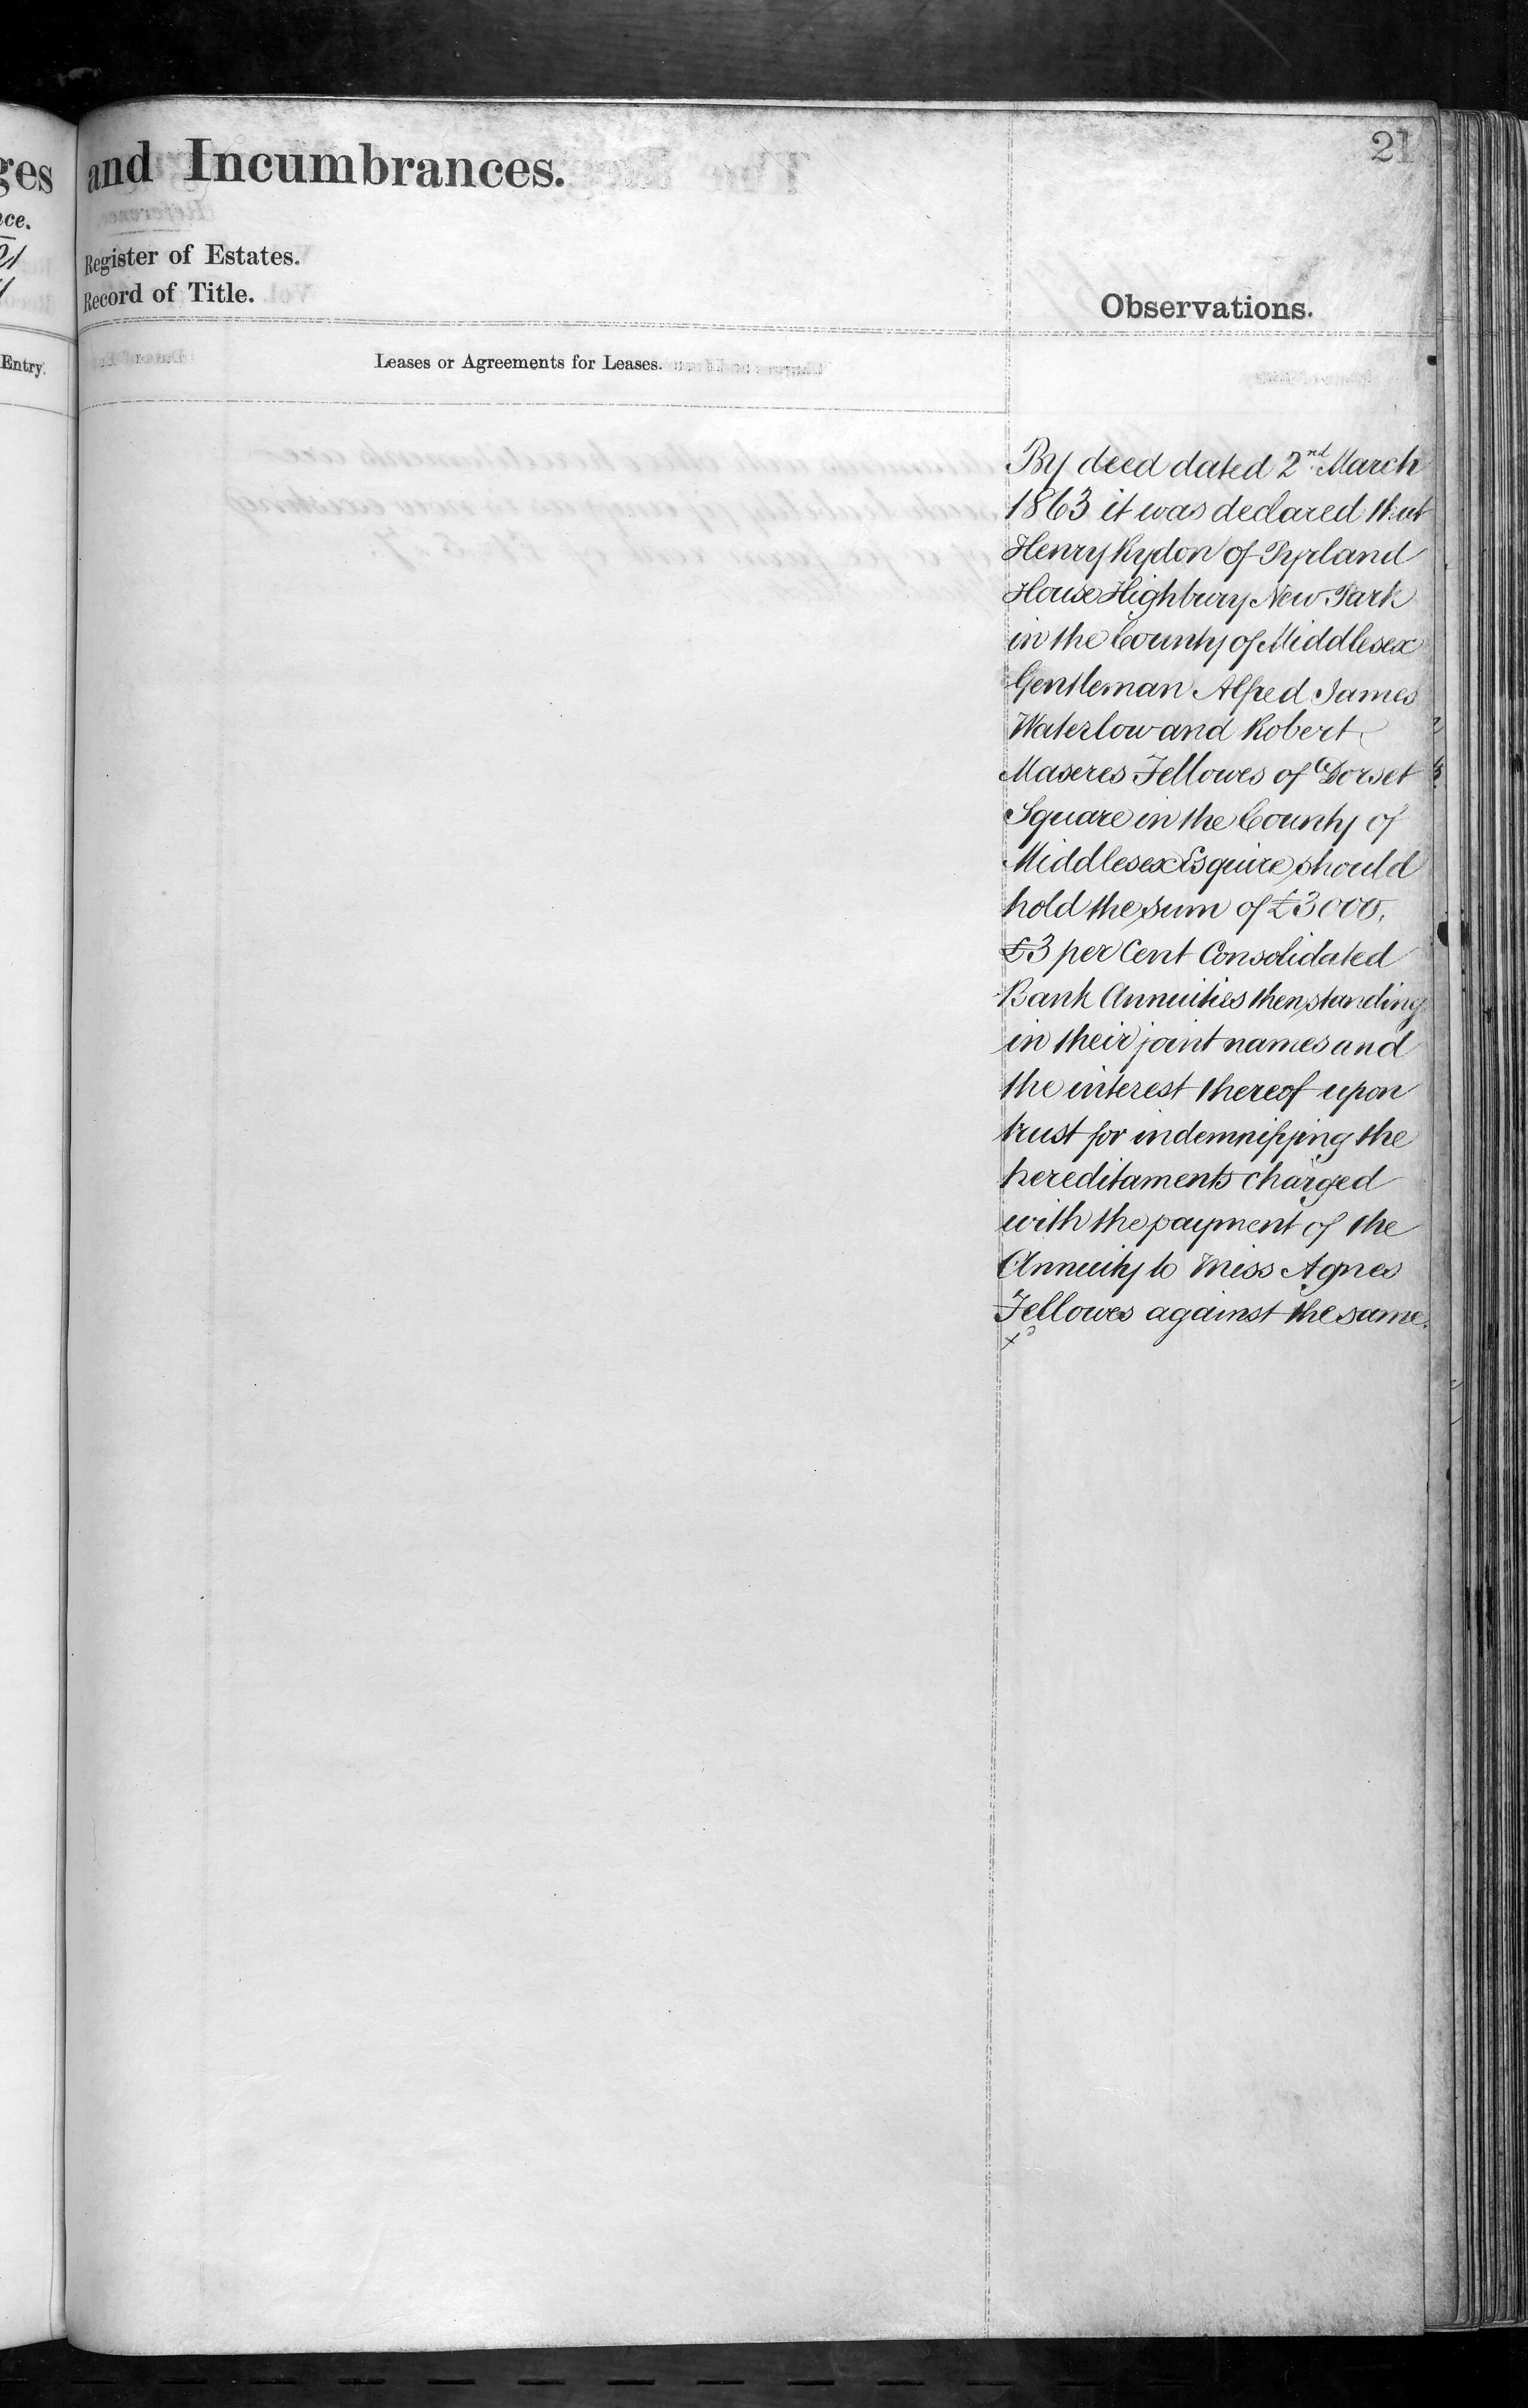 21
ges
and Incumbrances.
nce.
21
Register of Estates.
Record of Title.
Observations.
Entry.
Leases or Agreements for Leases.
By deed dated 2nd March
1863 it was declared that
Henry Rydon of Pyrland
House Highbury New Park
in the County of Middlesex
Gentleman Alfred James
Waterlow and Robert
Maseres Fellowes of Dorset
Square in the County of
Middlesex Esquire should
hold the sum of £3000,
£3 per Cent Consolidated
Bank Annuities then standing
in their joint names and
the interest thereof upon
trust for indemnifying the
hereditaments charged
with the payment of the
Annuity to Miss Agnes
Fellowes against the same.